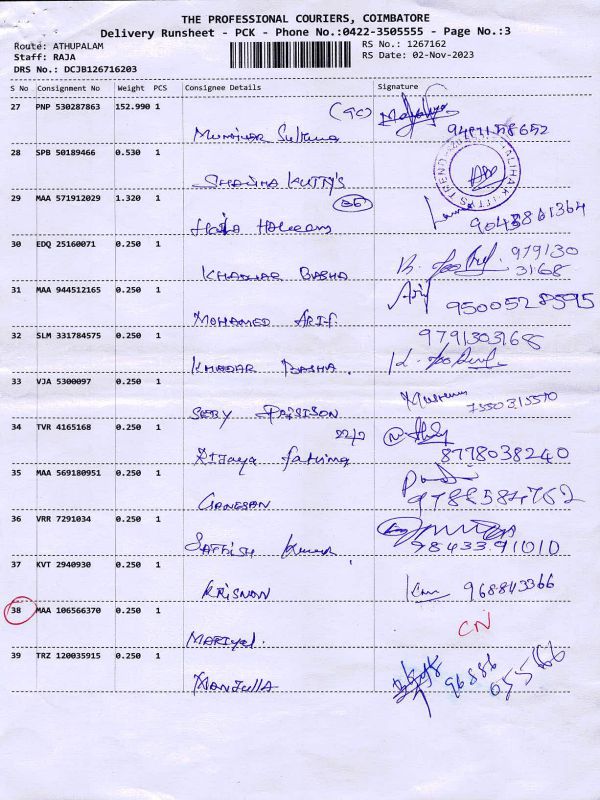 THE PROFESSIONAL COURIERS, COIMBATORE
Delivery Runsheet - PCK - Phone No.:0422-3505555 - Page No.:3
Route: ATHUPALAM
Staff: RAJA
DRS No.: DCJB126716203
RS No.: 1267162
RS Date: 02-Nov-2023
S No Consignment No Weight PCS Consignee Details Signature
27 PNP 530287863 152.990 1
28 SPB 50189466 0.530 1
SHAISHA KUTTY'S
29 MAA 571912029 1.320 1
9043861364
30 EDQ 25160071 0.250 1
KHADHAR BASHA
979130
3168
31 MAA 944512165 0.250 1
MOHAMED ARIF
Arif
9500528595
32 SLM 331784575 0.250 1
KHADAR BASHA.
9791303168
33 VJA 5300097 0.250 1
7550315510
34 TVR 4165168 0.250 1
Fatima
8778038240
35 MAA 569180951 0.250 1
GANESAN
9788584762
36 VRR 7291034 0.250 1
SATHISH Kumar
98433.91010
37 KVT 2940930 0.250 1
KRISNAN
968843366
38 MAA 106566370 0.250 1
CN
39 TRZ 120035915 0.250 1
MANJULLA
96886
055566